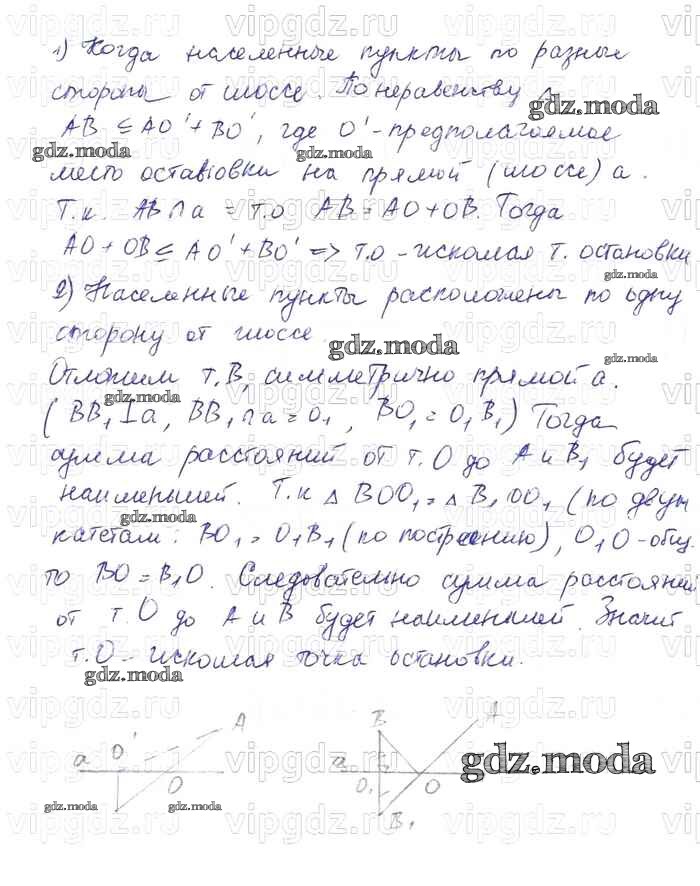 1) Когда населенные пункты по разные
стороны от шоссе. По неравенству Δ
AB ≤ AO' + BO', где O' - предполагаемое
место остановки на прямой (шоссе) a.
Т.к. AB ∩ a = т.O AB = AO + OB. Тогда
AO + OB ≤ AO' + BO' => т.O - искомая т. остановки
2) Населенные пункты расположены по одну
сторону от шоссе
Отложим т. B₁ симметрично прямой a.
(BB₁ ⊥ a, BB₁ ∩ a = O₁, BO₁ = O₁B₁) Тогда
сумма расстояний от т. O до A и B₁ будет
наименьшей. Т.к Δ BOO₁ = Δ B₁OO₁ (по двум
катетам: BO₁ = O₁B₁ (по построению), O₁O - общ.
то BO = B₁O. Следовательно сумма расстояний
от т. O до A и B будет наименьшей. Значит
т. O - искомая точка остановки.
a O' A
O
B A
a O₁ O
B₁
gdz.moda
vipgdz.ru